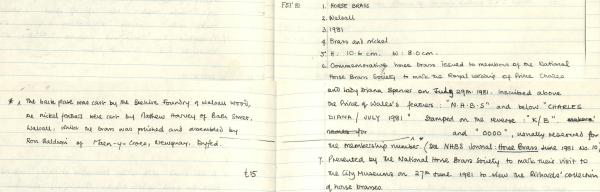 F51'81
1. HORSE BRASS
2. Walsall
3. 1981
4. Brass and nickel
5. H: 10.6 cm. W: 8.0 cm.
6. Commemorative horse brass issued to members of the National
Horse Brass Society to mark the Royal Wedding of Prince Charles
and Lady Diana Spencer on July 29th 1981. Inscribed above
the Prince of Wales's feathers: "N.H.B.S" and below "CHARLES
DIANA / JULY 1981" Stamped on the reverse: "K/B".
and "0000", usually reserved for
the membership number. (see NHBS Journal: Horse Brass June 1981 No. 10,
7. Presented by the National Horse Brass Society to mark their visit to
the City Museums on 27th June 1981 to view the Richards' collection
of horse brasses
* ^ The back plate was cast by the Beehive Foundry of Walsall Wood,
the nickel feathers were cast by Mathew Harvey of Bath Street,
Walsall. Whilst the brass was polished and assembled by
Ron Baldwin of Maen-y-Groes, Newquay, Dyfed.
£15